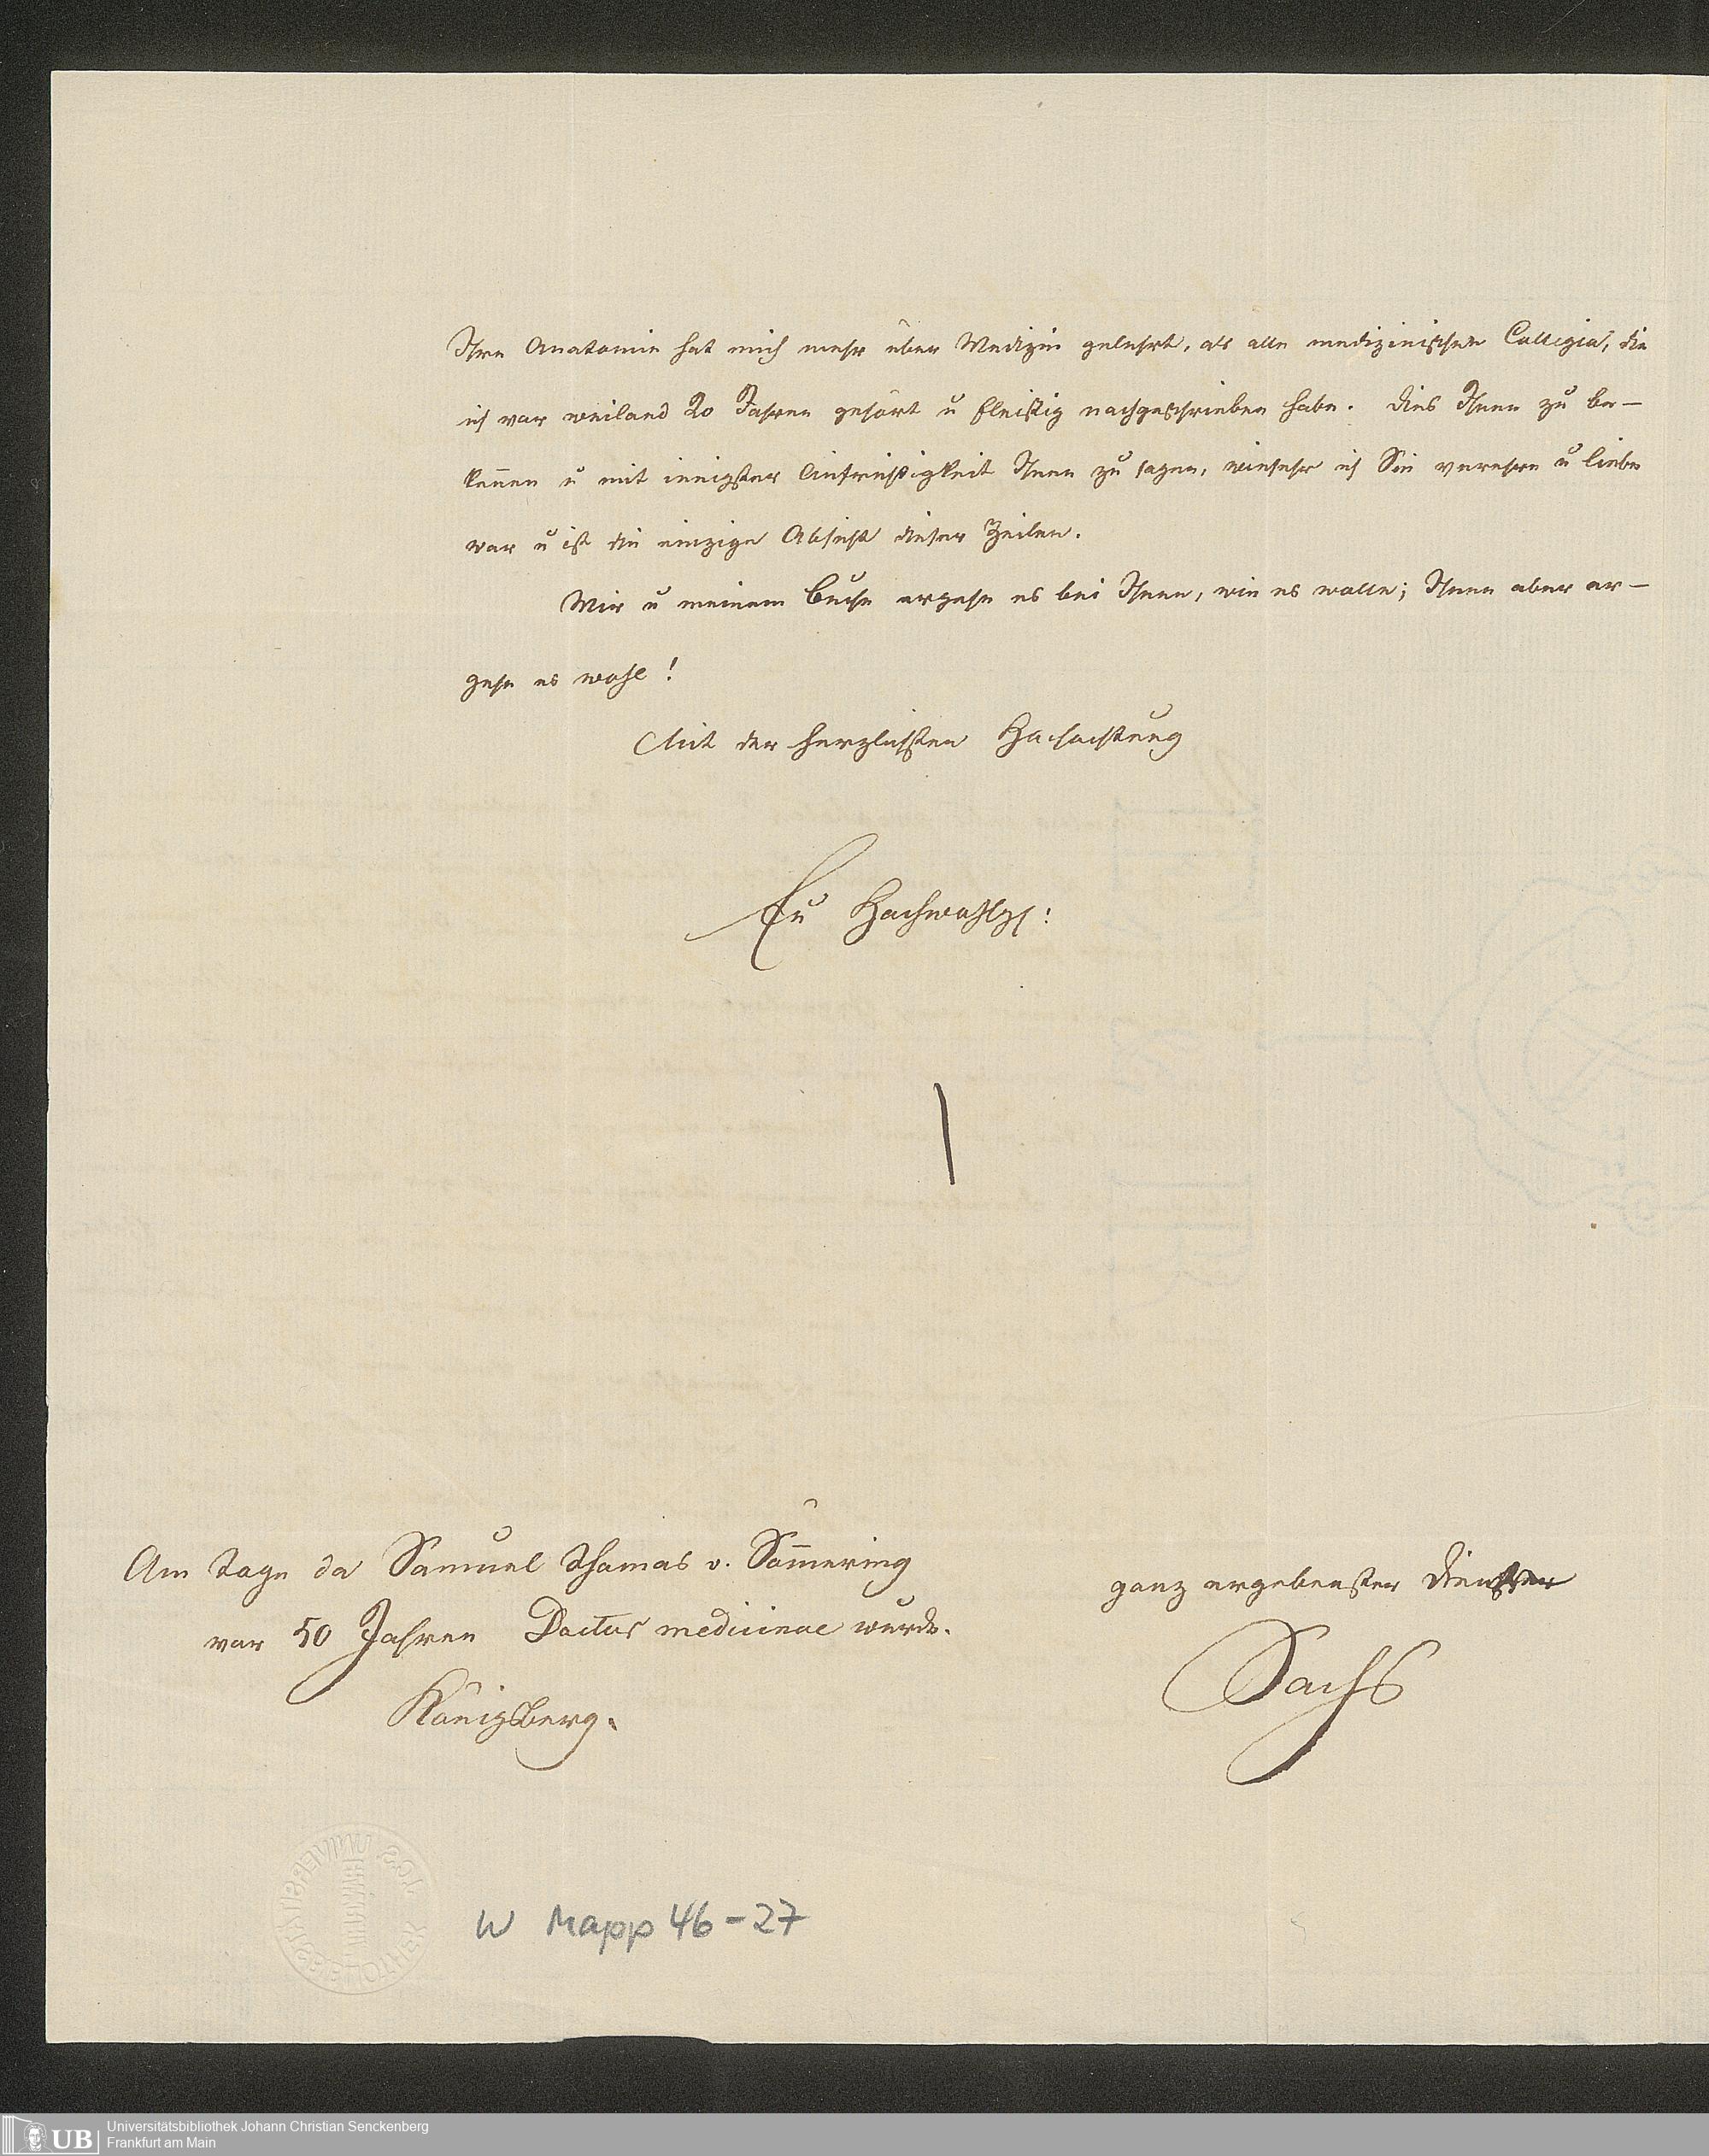 Ihre Anatomie hat mich mehr über Medizin gelehrt, als alle medizinischen Collegia, die
ich vor weiland 20 Jahren gehört u fleißig nachgeschrieben habe. Dies Ihnen zu be-
kennen u mit innigster Aufrichtigkeit Ihnen zu sagen, wiesehr ich Sie verehre u liebe
war u ist die einzige Absicht dieser Zeilen.
Mir u meinem Buche ergehe es bei Ihnen, wie es wolle; Ihnen aber er-
gehe es wohl!
Mit der herzlichsten Hochachtung
Eu Hochwohlg:
Am Tage da Samuel Thomas v. Sömering
vor 50 Jahren Doctor medicinae wurde.
Königsberg.
ganz ergebenster Diener
Sachs
W Mapp 46-27
UB
Universitätsbibliothek Johann Christian Senckenberg
Frankfurt am Main